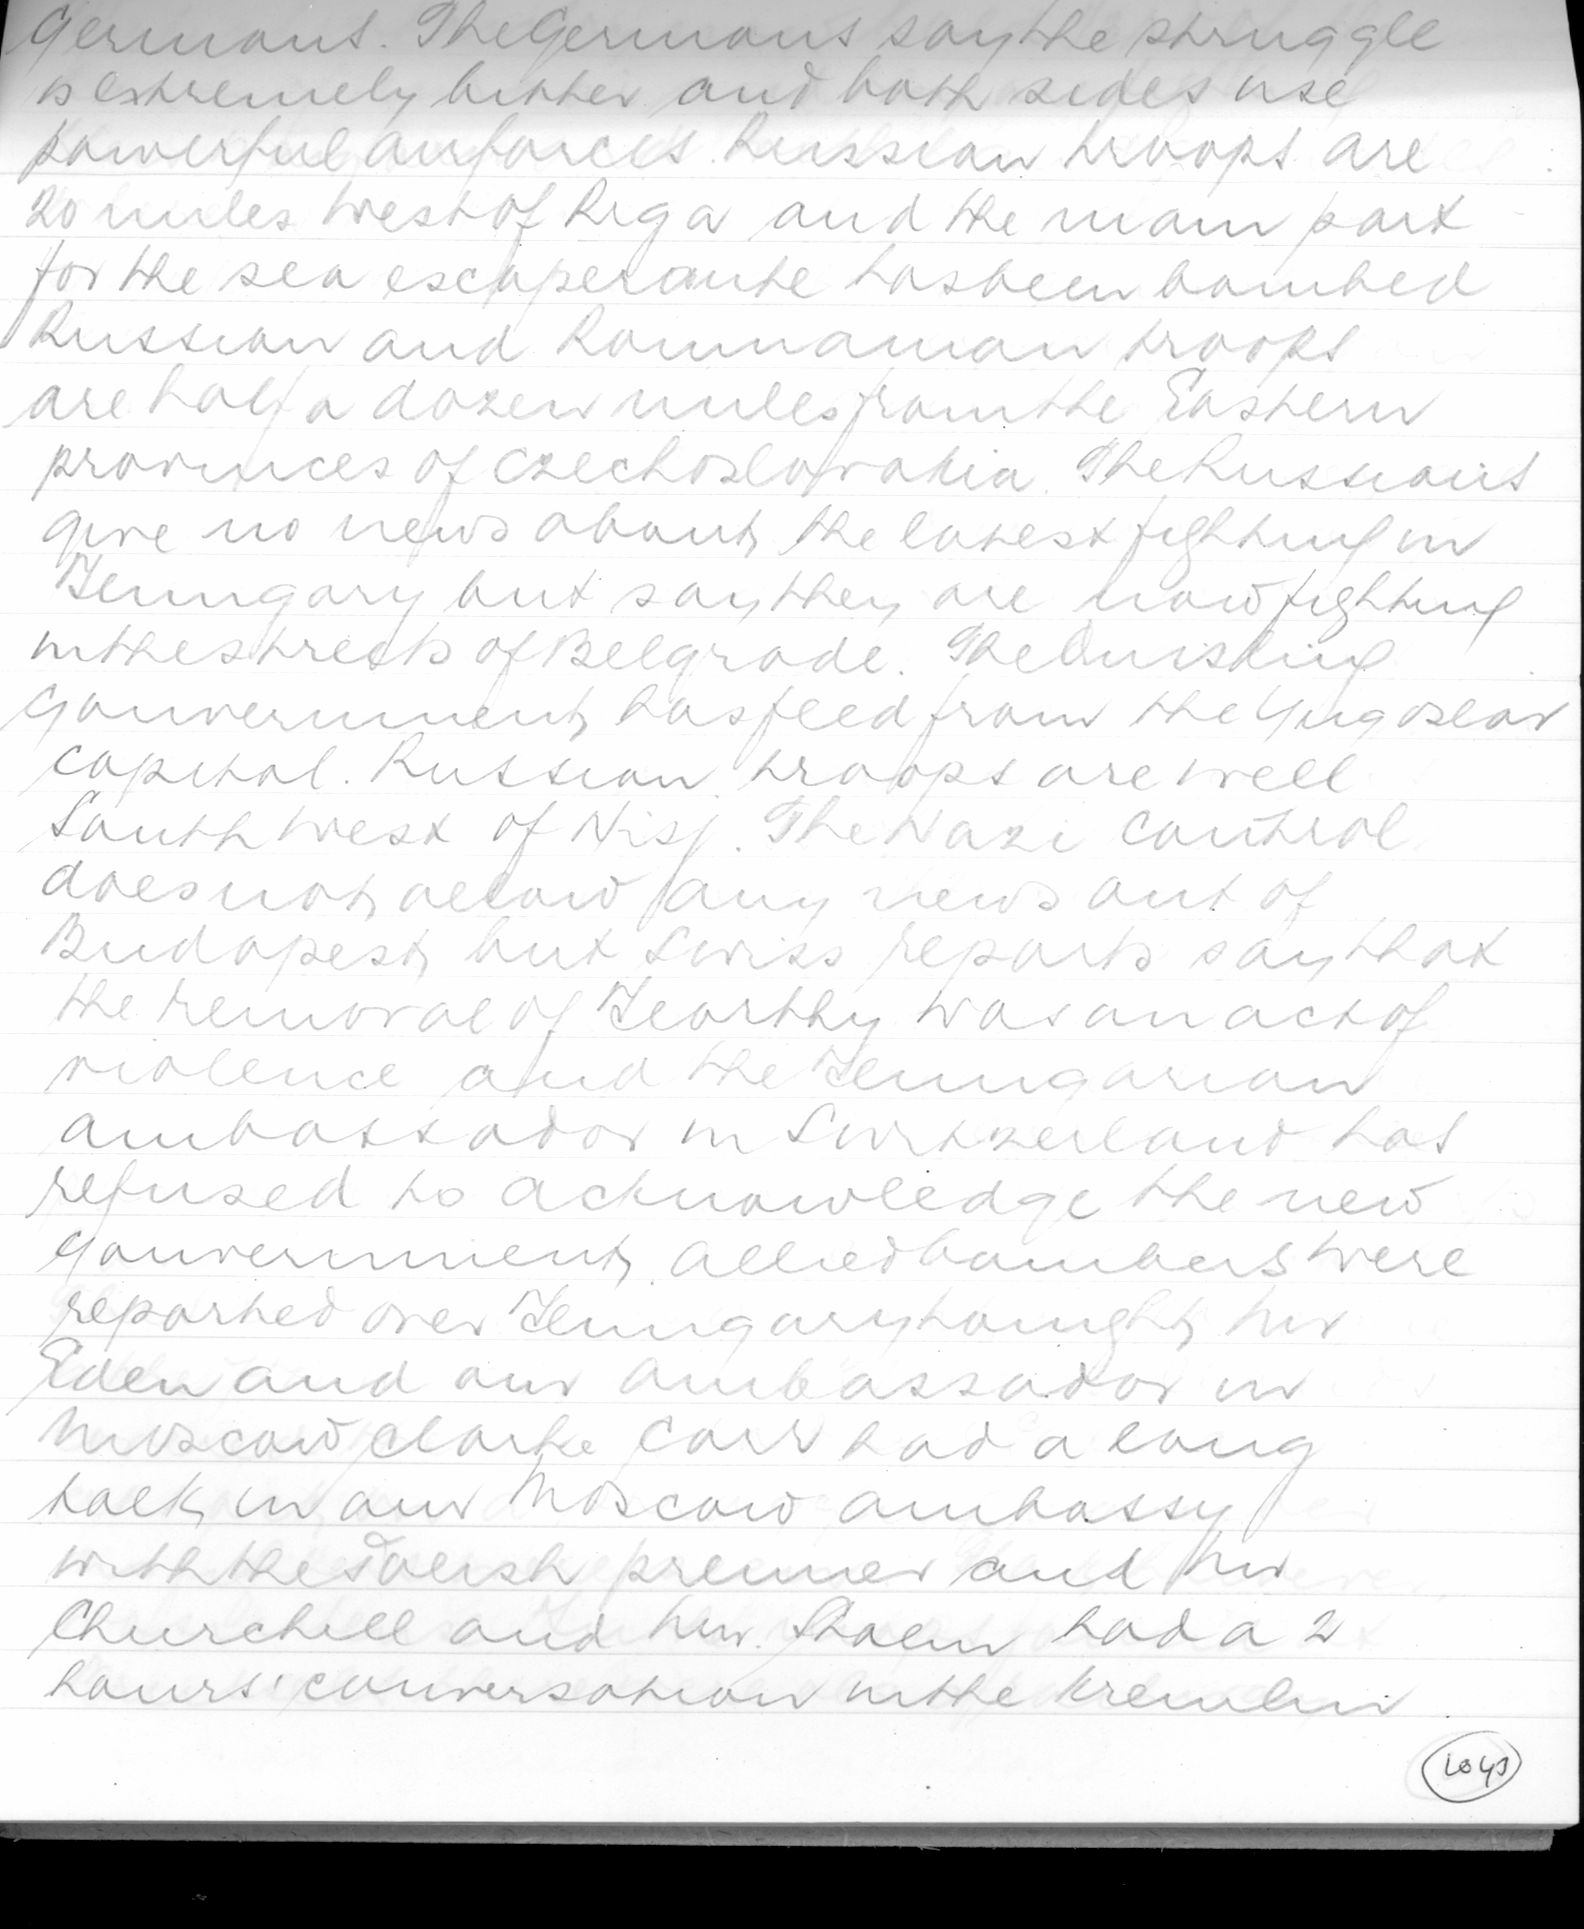 Germans. The Germans say the struggle
is extremely bitter and both sides use
powerful airforces. Russian troops are
20 miles West of Riga and the main port
for the sea escape route has been bombed
Russian and Roumanian troops
are half a dozen miles from the Eastern
provinces of Czechoslovakia. The Russians
give no news about the latest fighting in
Hungary but say they are now fighting
in the streets of Belgrade. The Quisling
Gouvernment has fleed from the Yugoslav
capital. Russian troops are well
South West of Nisj. The Nazi control
does not allow any news out of
Budapest but Swiss reports say that
the removal of Horthy was an act of
violence and the Hungarian
ambassador in Switzerland has
refused to acknowledge the new
gouvernment. Allied bombers were
reported over Hungary tonight. Mr
Eden and our ambassador in
Moscow Clarke Carr had a long
talk in our Moscow ambassy
with the Polish premier and Mr
Churchill and Mr. Stalin had a 2
hours' conversation in the Kremlin.